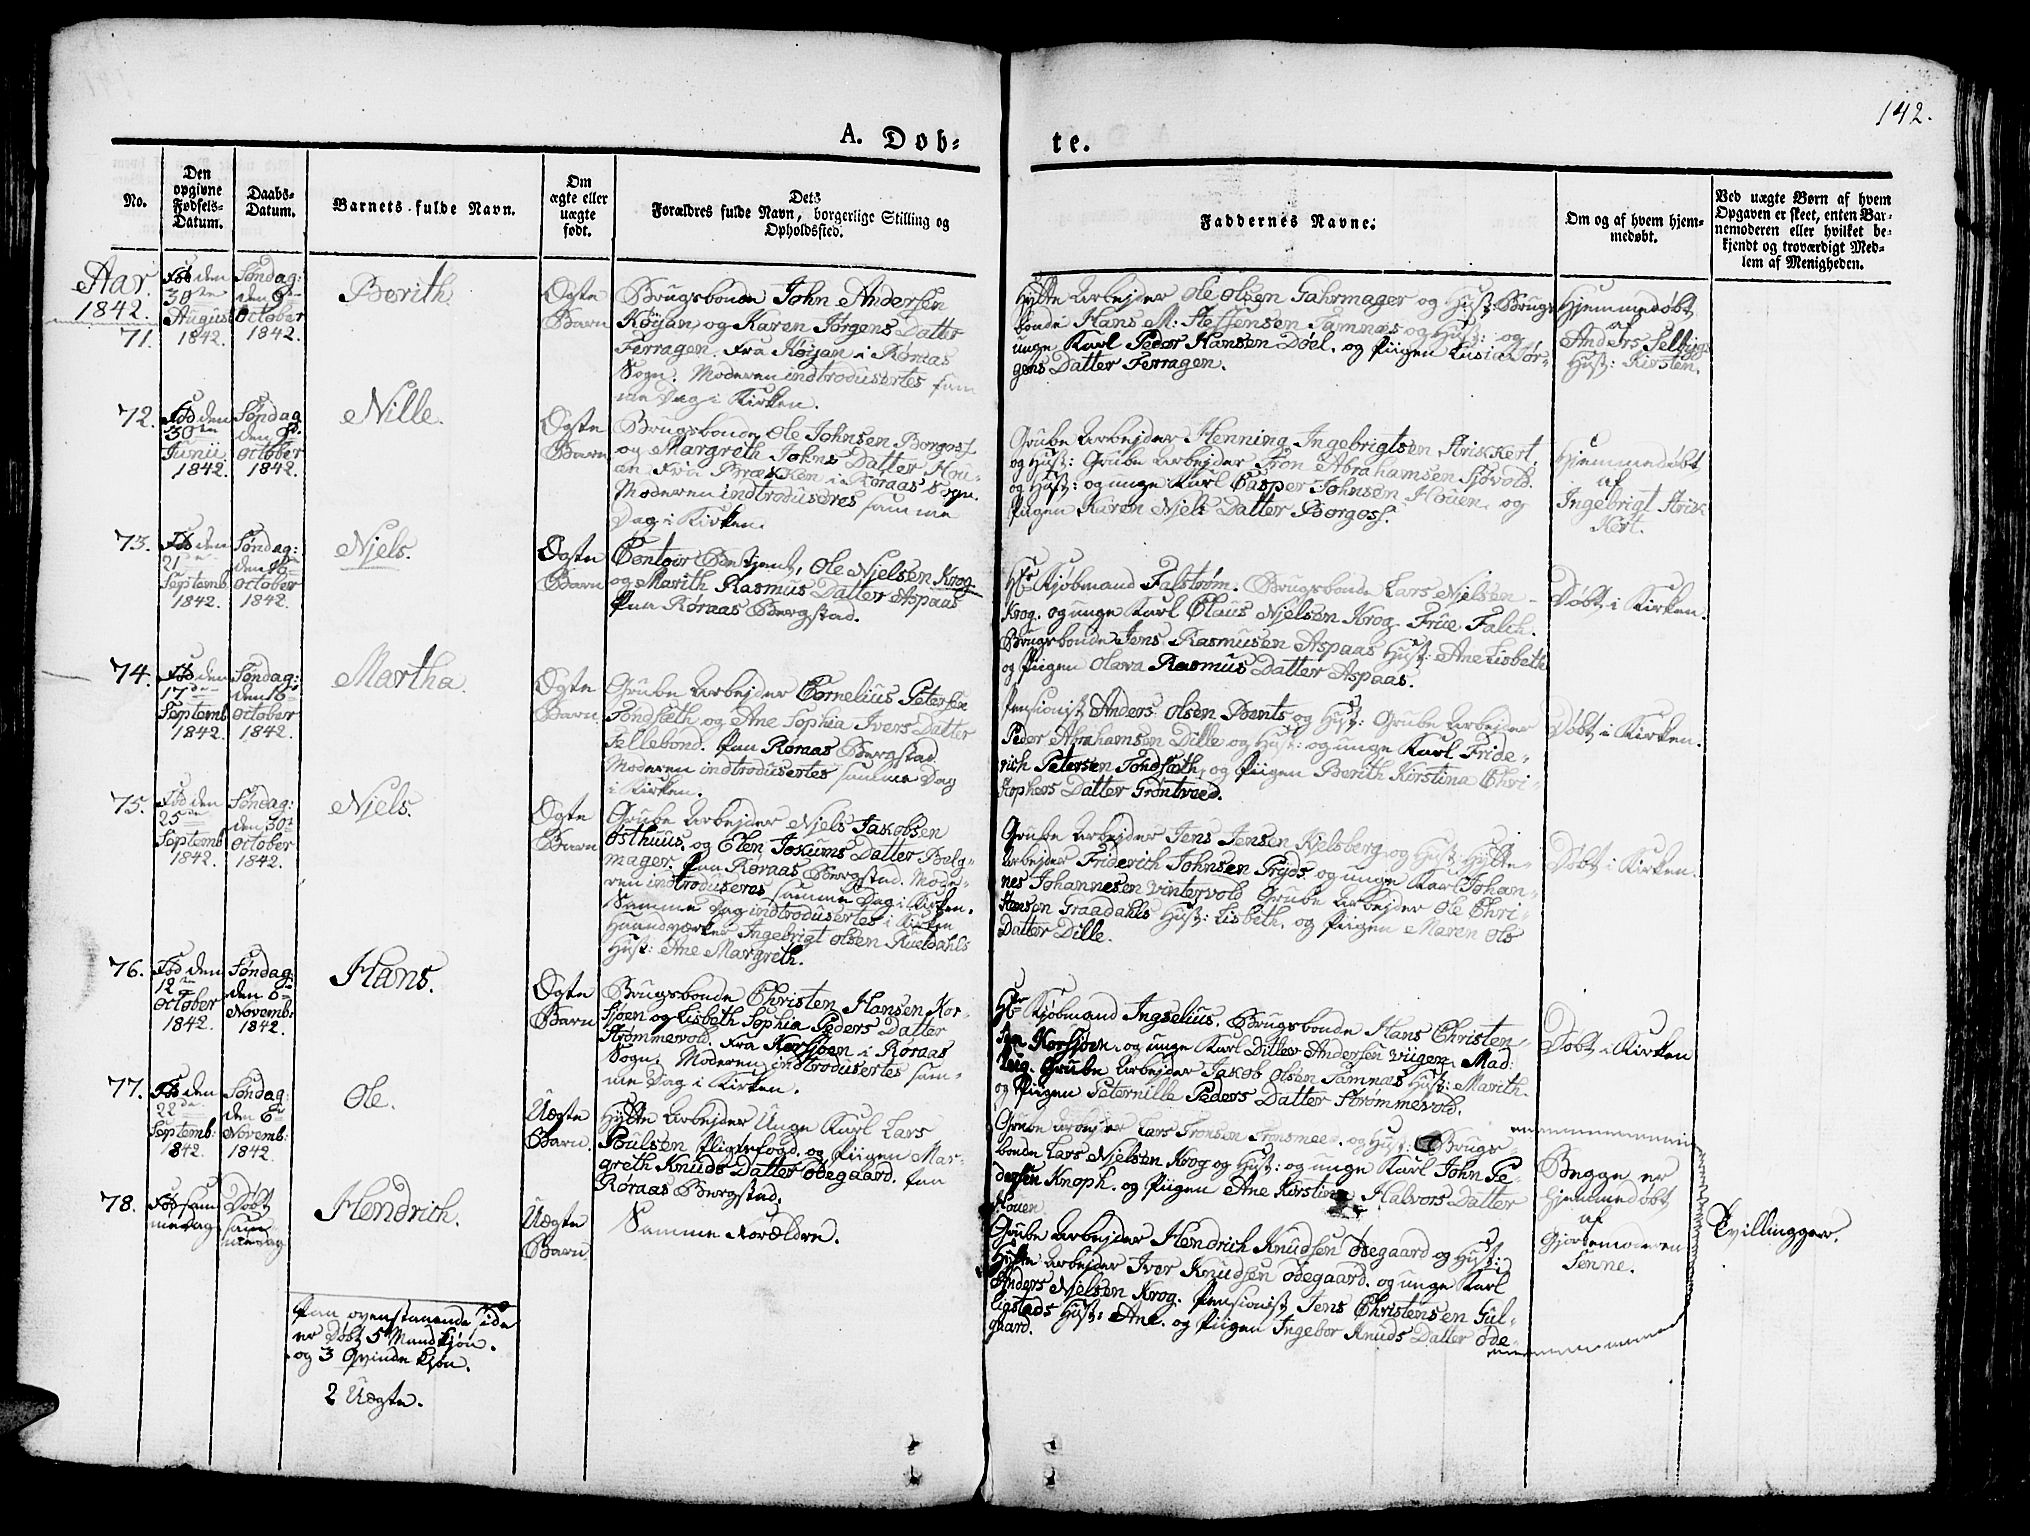 142.
A. Døb-
te.
No.
Den opgivne Fødsels-Datum.
Daabs-Datum.
Barnets fulde Navn.
Om ægte eller uægte født.
Dets Forældres fulde Navn, borgerlige Stilling og Opholdssted.
Faddernes Navne:
Om og af hvem hjemmedøbt.
Ved uægte Børn af hvem
Opgaven er skeet, enten Bar-
nemoderen eller hvilket be-
kjendt og troværdigt Med-
lem af Menigheden.
Aar.
1842.
71.
Fød den
30te
August
1842.
Søndag:
den 9de
October
1842.
Berith
Ægte
Barn
Brugsbonde John Andersen
Köijan, og Karen Jørgens Datter
Ferragen. Fra Köijan i Røraas
Sogn. Moderen indtrodusertes sam
me Dag i Kirken.
Hytte Arbejder Ole Olsen Gahrmager og Hust: Brugs
bonde Hans M: Steffensen Tamnæs og Hust: og
unge Karl Peder Hansen Döel. og Piigen Lusia Jør-
gens Datter Ferragen.
Hjemmedøbt
af
Anders Selbygs
Hust: Kirsten.
72.
Fød den
30te
Junii
1842.
Søndag
den 9de
October
1842.
Nille.
Ægte
Barn
Brugsbonde Ole Johnsen Borgos
og Margreth Johns Datter Hou-
en. Fra Brækken i Røraas Sogn.
Moderen indtroduseres samme
Dag i Kirken.
Grube Arbejder Henning Ingebrigtsen Strikkert,
og Hust: Grube Arbejder Tron Abrahamsen Sjøvold.
og Hust: og unge Karl Casper Johnsen Houen, og
Piigen Karen Njels Datter Borgos.
Hjemmedøbt
af
Ingebrigt Strik
kert.
73.
Fød den
21de
Septemb.
1842.
Søndag:
den 16de
October
1842.
Njels.
Ægte
Barn
Contoir Betjent, Ole Njelsen Krog
og Marith Rasmus Datter Aspaas
Paa Røraas Bergstad.
Hr Kjøbmand Falstrøm. Brugsbonde Lars Njelsen
Krog. og unge Karl Claus Njelsen Krog. Frue Falch.
Brugsbonde Jens Rasmusen Aspaas Hust: Ane Lisbeth
og Piigen Olava Rasmus Datter Aspaas.
Døbt i Kirken.
74.
Fød den
17de
Septemb
1842.
Søndag:
den 16de
October
1842.
Martha.
Ægte
Barn
Grube Arbejder Cornelius Petersen
Tøndsæth, og Ane Sophia Ivers Datter
Sellebond. Paa Røraas Bergstad.
Moderen indtrodusertes samme Dag
i Kirken.
Pensionist Anders Olsen Bents og Hust: Grube Arbejder
Peder Abrahamsen Dille og Hust: og unge Karl Fride-
rich Petersen Tøndsæth, og Piigen Berith Kirstina Chri-
stophers Datter Gröntveed.
Døbt i Kirken.
75.
Fød den
25de
Septemb
1842.
Søndag:
den 30te
October
1842.
Njels.
Ægte
Barn
Grube Arbejder Njels Jakobsen
Osthuus, og Elen Jokums Datter Belg-
mager. Paa Røraas Bergstad. Mode-
ren indtroduseres samme Dag i Kirken.
Samme Dag indtrodusertes i Kirken
Haandværker Ingebrigt Olsen Rueldahls
Hust: Ane Margreth.
Grube Arbejder Jens Jensen Kjelsberg og Hust, Hytte-
Arbejder Friderich Johnsen Pryds. og unge Karl Johan-
nes Johannesen Vintervold Grube Arbejder Ole Chri-
stensen Graadahls Hust: Lisbeth, og Piigen Maren Ols
Datter Dille.
Døbt i Kirken.
76.
Fød den
12te
October
1842.
Søndag:
den 6te
Novemb:
1842.
Hans.
Ægte
Barn
Brugsbonde Christen Hansen Kor-
sjöen og Lisbeth Sophia Peders Datter
Strömmevold. Fra Korsjöen i Røraas
Sogn. Moderen indtrodusertes sam-
me Dag i Kirken.
Hr Kjøbmand Ingselius, Brugsbonde Hans Christen-
sen Korsjøen. og unge Karl Ditlev Andersen Viigen. Mad:
Grube Arbejder Jakob Olsen Tamnæs Hust: Marith.
og Piigen Peternille Peders Datter Strömmevold.
Døbt i Kirken
77.
Fød den
22de
Septemb:
1842.
Søndag:
den 6te
Novemb:
1842.
Ole.
Uægte
Barn.
Hytte Arbejder Unge Karl Lars
Poulsen Pligtefogd. og Piigen Mar-
greth Knuds Datter Ödegaard. Paa
Røraas Bergstad.
Grube Arbejder Lars Tronsen Tronsmed. og Hust: Brugs
bonde Lars Njelsen Krog og Hust: og unge Karl John Pe-
dersen Knoph. og Piigen Ane Kirstina Halvors Datter
Houen.
Begge er
hjemmedøbt
af
Gjordemoderen
Tenne.
78.
Fød sam
me Dag
Døbt
sam
me Dag
Hendrich.
Uægte
Barn.
Samme Forældre.
Grube Arbejder Hendrich Knudsen Ödegaard og Hust:
Hytte Arbejder Iver Knudsen Ödegaard. og unge Karl
Anders Njelsen Krog. Pensionist Jens Christensen Gul-
ligstads Hust: Ane. og Piigen Ingebor Knuds Datter Öde-
gaard.
Tvillingger.
Paa ovenstaaende Side
er Døbt 5 Mandkjøn.
og 3 Qvinde kjøn.
2 Uægte.